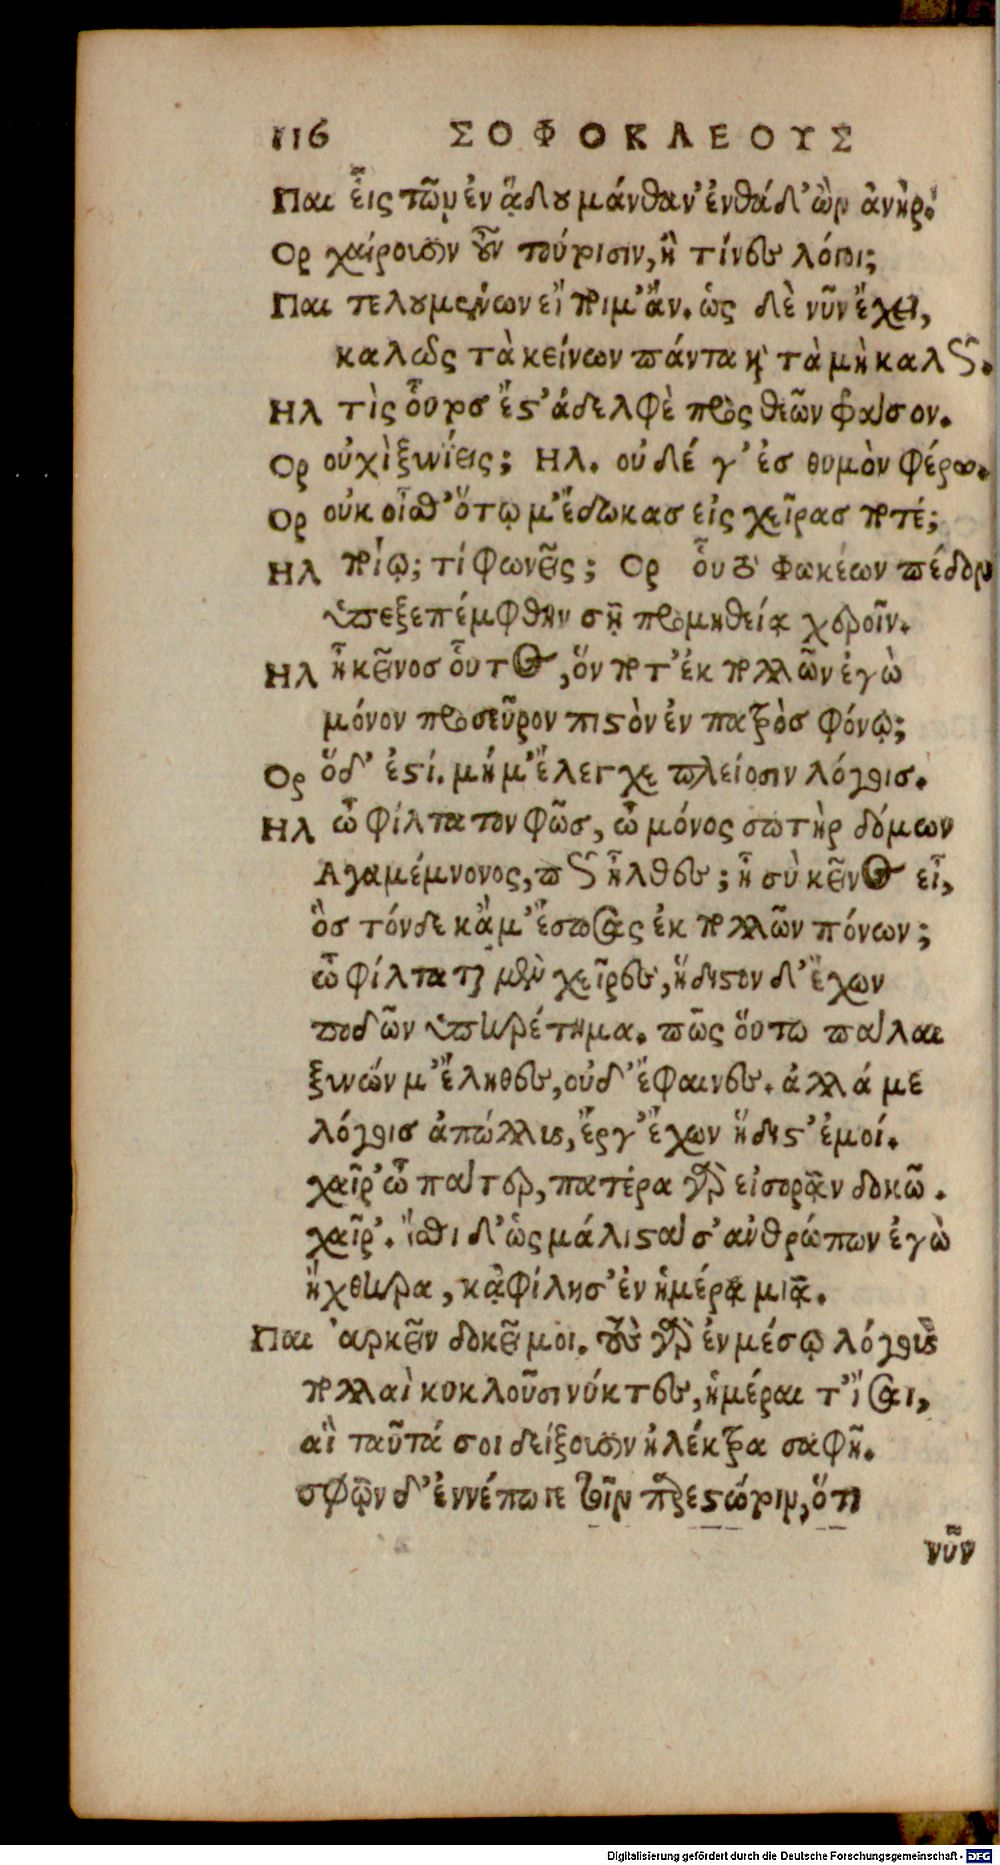 116 ΣΟΦΟΚΛΕΟΥΣ
Παι εἷις τῶν ἐν ᾅδου μάνθαν' ἐνθάδ' ὢν ἀνήρ.
Ορ χαίρουσιν οὖν τούτοισιν, ἢ τίνες λόγοι;
Παι τελουμένων εἴποιμ' ἄν. ὡς δὲ νῦν ἔχει,
καλῶς τὰ κείνων πάντα καὶ τὰ μὴ καλῶς.
Ηλ τὶς οὗτοσ ἔστ' ἀδελφὲ πρὸς θεῶν φράσον.
Ορ οὐχὶ ξυνίεις; Ηλ. οὐδέ γ' ἐσ θυμὸν φέρω.
Ορ οὐκ οἶσθ' ὅτῳ μ' ἔδωκασ εἰς χεῖρασ ποτέ;
Ηλ ποίῳ; τί φωνεῖς; Ορ οὗ τὸ Φωκέων πέδον
ὑπεξεπέμφθην σῇ προμηθείᾳ χεροῖν.
Ηλ ἦ κεῖνοσ οὗτος, ὅν ποτ' ἐκ πολλῶν ἐγὼ
μόνον προσεῦρον πιστὸν ἐν πατρὸσ φόνῳ;
Ορ ὅδ' ἐστί. μή μ' ἔλεγχε πλείοσιν λόγοισ.
Ηλ ὦ φίλτατον φῶσ, ὦ μόνος σωτὴρ δόμων
Αγαμέμνονος, πῶς ἦλθες; ἦ σὺ κεῖνος εἶ,
ὃσ τόνδε κἄμ' ἔσωσας ἐκ πολλῶν πόνων;
ὦ φίλταται μὲν χεῖρες, ἥδιστον δ' ἔχων
ποδῶν ὑπηρέτημα. πῶς ὅυτω πάλαι
ξυνών μ' ἔληθες, οὐδ' ἔφαινες. ἀλλά με
λόγοισ ἀπώλλυς, ἔργ' ἔχων ἥδιστ' ἐμοί.
χαῖρ' ὦ πάτερ, πατέρα γὰρ εἰσορᾷν δοκῶ.
χαῖρ'. ἴσθι δ' ὡς μάλιστά σ' ἀνθρώπων ἐγὼ
ἤχθηρα, κᾀφίλησ' ἐν ἡμέρᾳ μιᾷ.
Παι ἀρκεῖν δοκεῖ μοι. τοὺς γὰρ ἐν μέσῳ λόγους
πολλαὶ κυκλοῦσι νύκτες, ἡμέραι τ' ἴσαι,
αἳ ταῦτά σοι δείξουσιν ἠλέκτρα σαφῆ.
σφῷν δ' ἐννέπω γε τοῖν παρεστώτοιν, ὅτι
νῦν
Digitalisierung gefördert durch die Deutsche Forschungsgemeinschaft - DFG